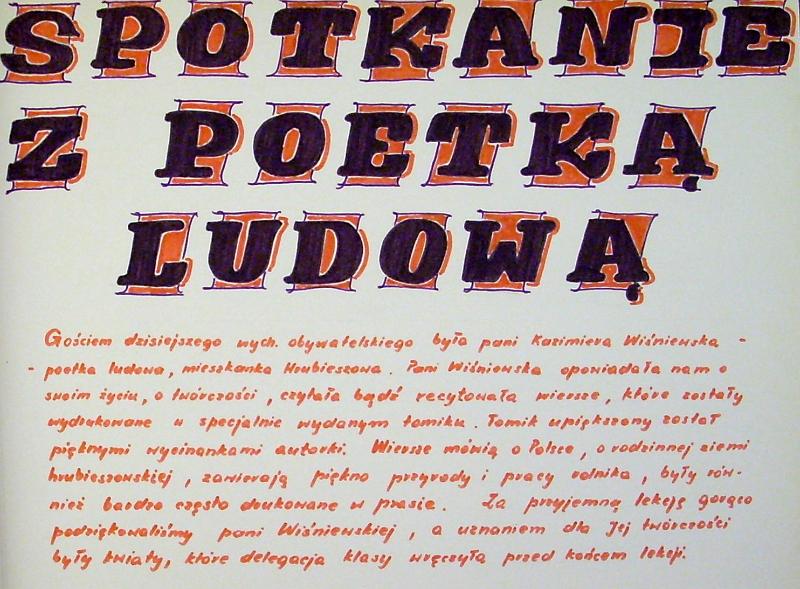 SPOTKANIE
Z POETKĄ
LUDOWĄ
Gościem dzisiejszego wych. obywatelskiego była pani Kazimiera Wiśniewska -
- poetka ludowa, mieszkanka Hrubieszowa. Pani Wiśniewska opowiadała nam o
swoim życiu, o twórczości, czytała bądź recytowała wiersze, które zostały
wydrukowane w specjalnie wydanym tomiku. Tomik upiększony został
pięknymi wycinankami autorki. Wiersze mówią o Polsce, o rodzinnej ziemi
hrubieszowskiej, zawierają piękno przyrody i pracy rolnika, były rów-
nież bardzo często drukowane w prasie. Za przyjemną lekcję gorąco
podziękowaliśmy pani Wiśniewskiej, a uznaniem dla Jej twórczości
były kwiaty, które delegacja klasy wręczyła przed końcem lekcji.